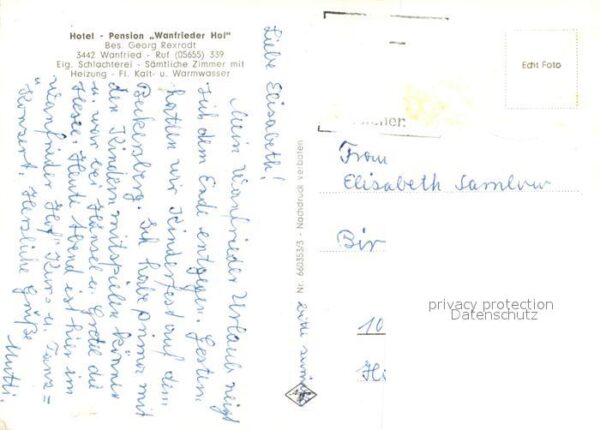 Hotel - Pension „Wanfrieder Hof"
Bes. Georg Rexrodt
3442 Wanfried - Ruf (05655) 339
Eig. Schlachterei - Sämtliche Zimmer mit
Heizung - Fl. Kalt- u. Warmwasser
Liebe Elisabeth!
Mein Wanfrieder Urlaub neigt
sich dem Ende entgegen. Gestern
hatten wir Kinderfest auf dem
Ich habe prima mit
den Kindern mitspielen können
u. war bei Hänsel u. Gretel die
Hexe. Heute Abend ist hier im
"Wanfrieder Hof" Kur- u. Tanz=
Konzert. Herzliche Grüße
Mutti.
Nr. 660353/3 - Nachdruck verboten
bitte
Echt Foto
Elisabeth
Bir
privacy protection
Datenschutz
10